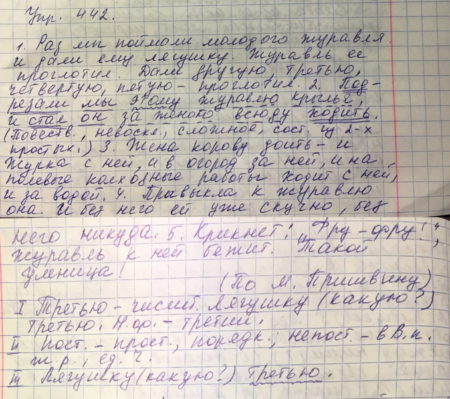 Упр. 442.
1. Раз мы поймали молодого журавля
и дали ему лягушку. Журавль её
проглотил. Дали другую, третью,
четвёртую, пятую - проглотил. 2. Под-
резали мы этому журавлю крылья,
и стал он за женою всюду ходить.
(Повеств., невоскл., сложное, сост. из 2-х
простых.) 3. Жена корову доить - и
Журка с ней, и в огород за ней, и на
полевые колхозные работы ходит с ней,
и за водой. 4. Привыкла к журавлю
она. И без него ей уже скучно, без
него никуда. 5. Крикнет: „Фру-фру!",
журавль к ней бежит. Такой
умница!
(По М. Пришвину)
I Третью - числит. Лягушку (какую?)
третью. Н.ф. - третий.
II Пост. - прост., порядк.; непост. - в В.п.
ж.р., ед.ч.
III Лягушку (какую?) третью.